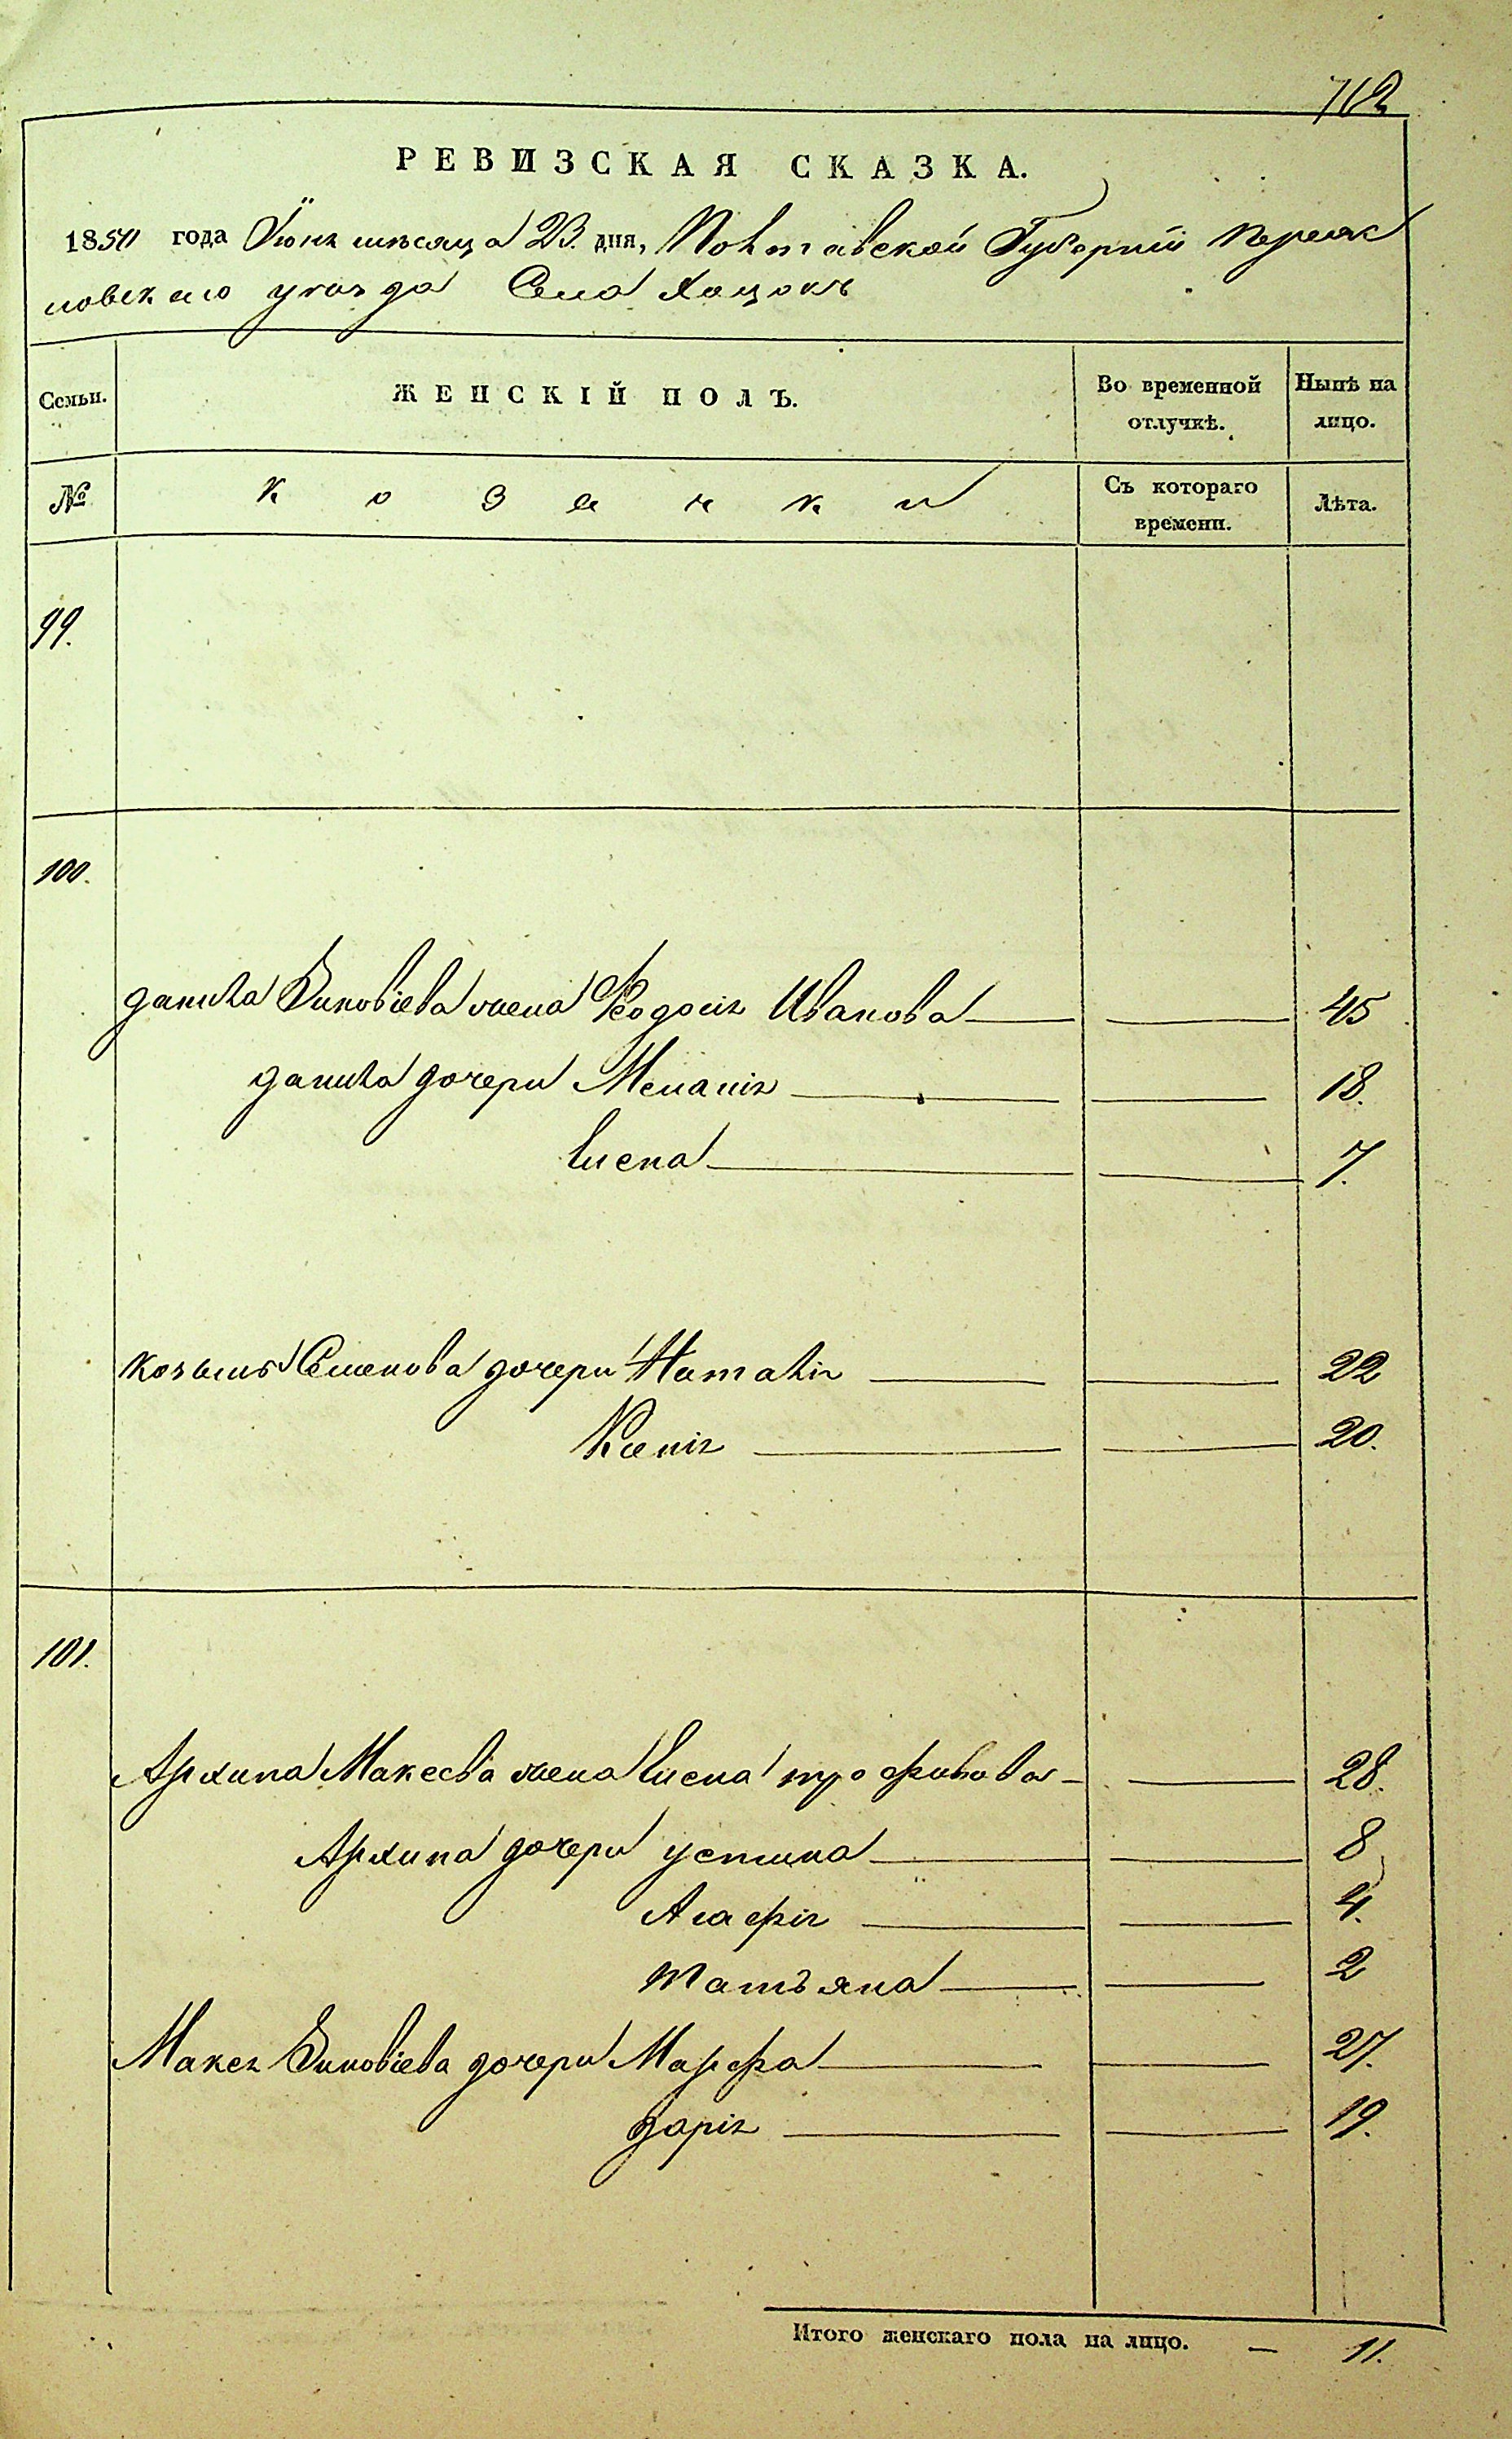 712
РЕВИЗСКАЯ СКАЗКА.
1850 года Июня мѣсяца 23. дня, Полтавской Губерніи Переяс
ловскаго уѣзда Села Хоцокъ
Семьи. ЖЕНСКІЙ ПОЛЪ. Во временной отлучкѣ. Нынѣ на лицо.
№ Козачки Съ котораго времени. Лѣта.
99.
100.
Данила Зиновіева жена Ѳеодосія Иванова 45
Данила дочери Меланія 18.
Елена 7.
Козьмы Семенова дочери Наталія 22
Ксенія 20.
101.
Архипа Макеева жена Елена Трофимова 28.
Архипа дочери Устина 8
Агафія 4.
Татьяна 2
Макея Зиновіева дочери Марфа 27.
Дарія 19.
Итого женскаго пола на лицо. — 11.